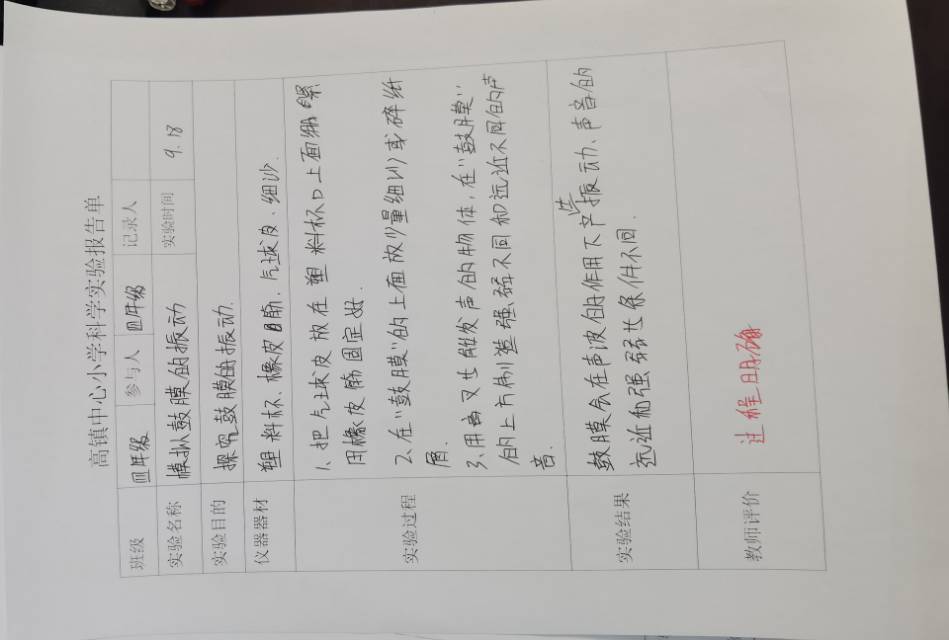 高镇中心小学科学实验报告单
班级 四年级 参与人 四年级 记录人
实验名称 模拟鼓膜的振动 实验时间 9.18
实验目的 探究鼓膜的振动.
仪器器材 塑料杯、橡皮筋、气球皮、细沙.
实验过程
1、把气球皮放在塑料杯口上面绷紧
用橡皮筋固定好.
2、在"鼓膜"的上面放少量细沙或碎纸
屑.
3、用音叉或能发声的物体,在"鼓膜"
的上方制造强、弱不同和远近不同的声
音.
实验结果
鼓膜会在声波的作用下产生振动、声音的
远近和强弱
不同.
教师评价 过程明确